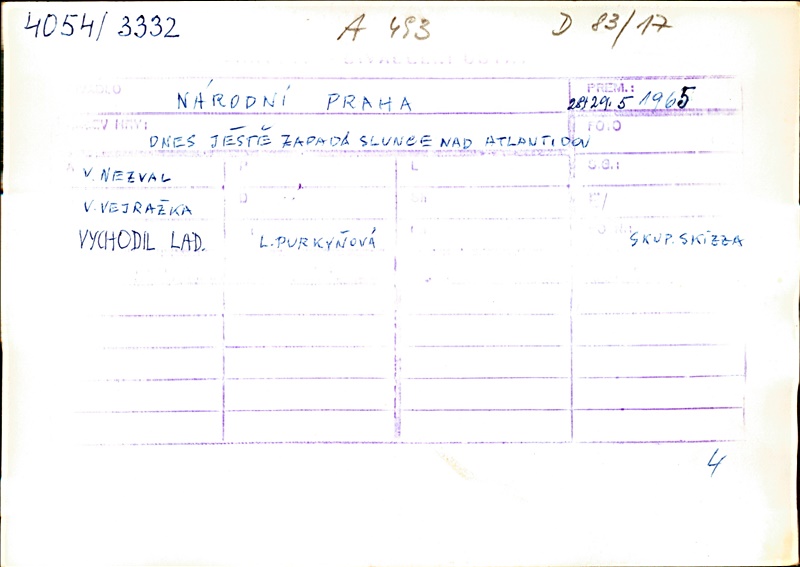 4054/3332 A 493 D 83/17
NÁRODNÍ PRAHA PREM.: 28/29.5 1965
DNES JEŠTĚ ZAPADÁ SLUNCE NAD ATLANTIDOU
V. NEZVAL
V. VEJRAŽKA
VYCHODIL LAD. L. PURKYŇOVÁ SKUP. SKIZZA
4